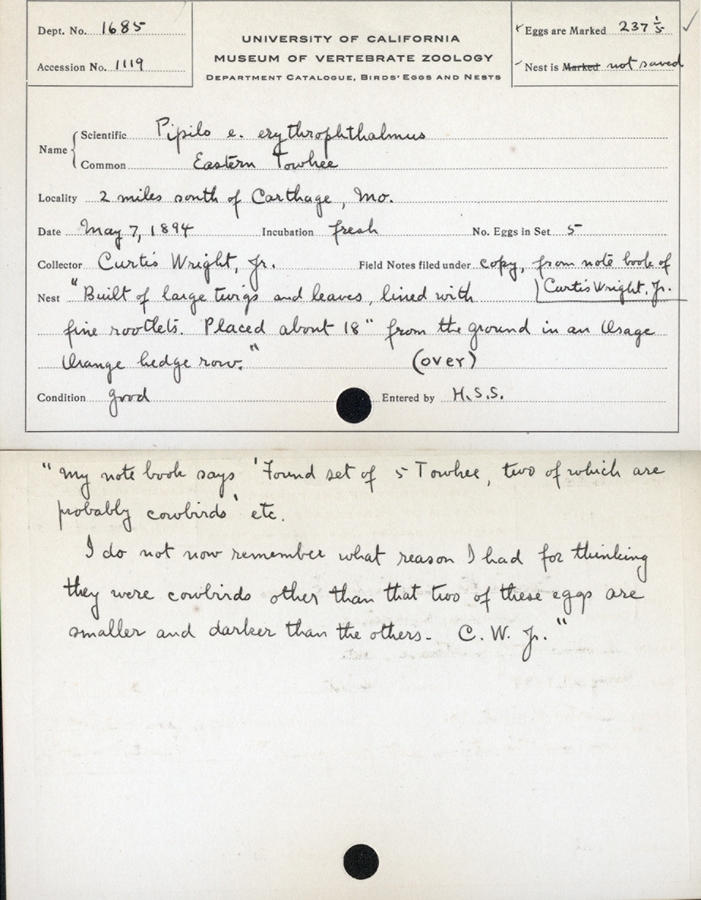 Dept. No. 1685
Accession No. 1119
UNIVERSITY OF CALIFORNIA
MUSEUM OF VERTEBRATE ZOOLOGY
DEPARTMENT CATALOGUE, BIRDS' EGGS AND NESTS
Eggs are Marked 237 1/5 ✓
Nest is Marked not saved
Name
Scientific Pipilo e. erythrophthalmus
Common Eastern Towhee
Locality 2 miles south of Carthage, Mo.
Date May 7, 1894 Incubation fresh No. Eggs in Set 5
Collector Curtis Wright, Jr. Field Notes filed under copy, from note book of
Curtis Wright, Jr.
Nest "Built of large twigs and leaves, lined with
fine rootlets. Placed about 18" from the ground in an Osage
Orange hedge row." (over)
Condition good Entered by H.S.S.
"My note book says 'Found set of 5 Towhee, two of which are
probably cowbirds' etc.
I do not now remember what reason I had for thinking
they were cowbirds other than that two of these eggs are
smaller and darker than the others. C. W. Jr."